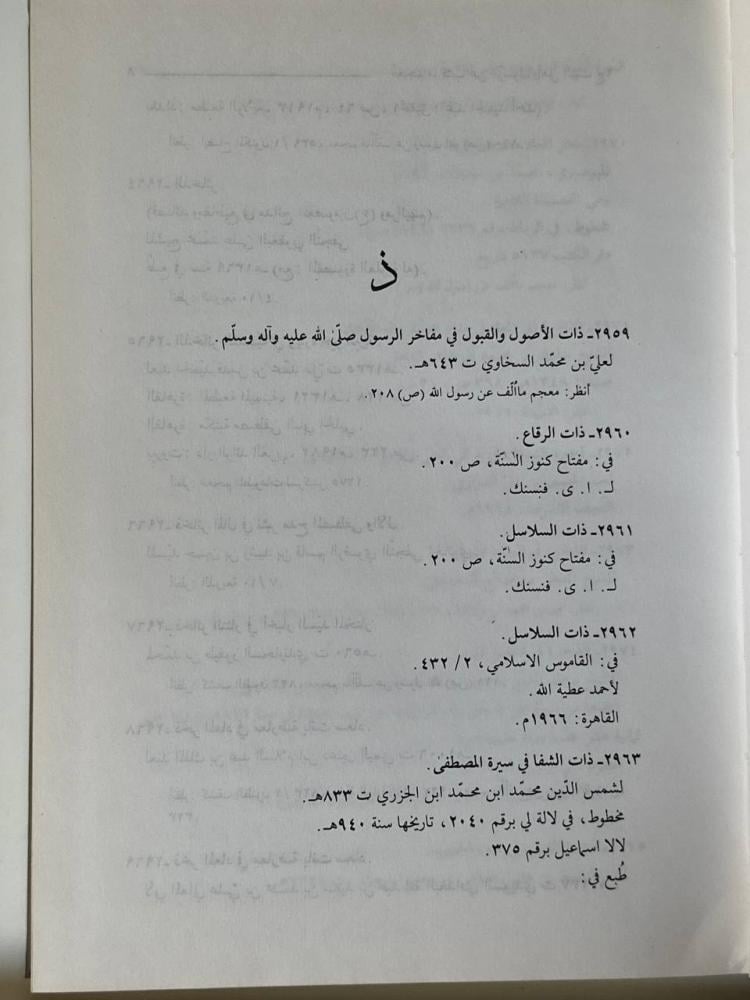 ذ
٢٩٥٩ـ ذات الأصول والقبول في مفاخر الرسول صلّىٰ الله عليه وآله وسلّم.
لعليّ بن محمّد السخاوي ت ٦٤٣هـ.
أنظر: معجم ماأُلّف عن رسول الله (ص) ٢٠٨.
٢٩٦٠ـ ذات الرقاع.
في: مفتاح كنوز السُنّة، ص ٢٠٠.
لـ. ا. ى. فنسنك.
٢٩٦١ـ ذات السلاسل.
في: مفتاح كنوز السُنّة، ص ٢٠٠.
لـ. ا. ى. فنسنك.
٢٩٦٢ـ ذات السلاسل.
في: القاموس الاسلامي، ٢/ ٤٣٢.
لأحمد عطية الله.
القاهرة: ١٩٦٦م.
٢٩٦٣ـ ذات الشفا في سيرة المصطفىٰ.
لشمس الدّين محمّد ابن محمّد ابن الجزري ت ٨٣٣هـ.
مخطوط، في لالة لي برقم ٢٠٤٠، تاريخها سنة ٩٤٠هـ.
لالا اسماعيل برقم ٣٧٥.
طُبع في: